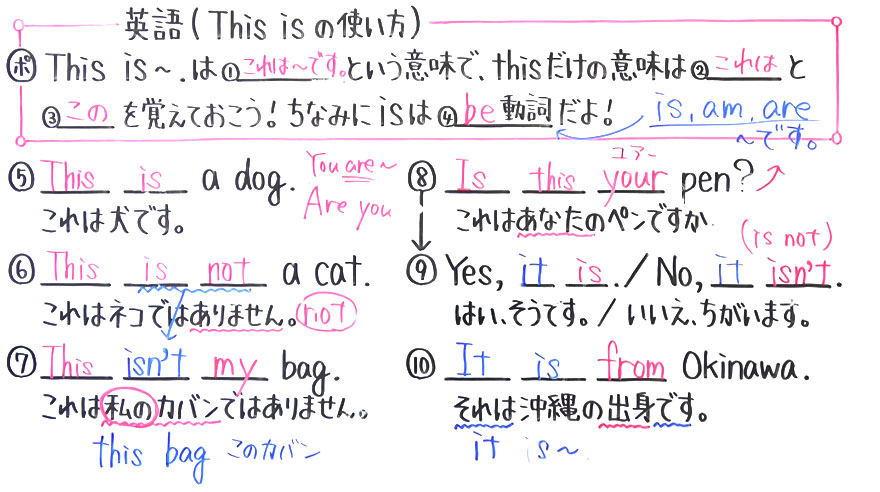 英語(This isの使い方)
ポ This is～.は①これは～です。という意味で、thisだけの意味は②これはと
③このを覚えておこう！ちなみにisは④be動詞だよ！
is, am, are
～です。
⑤This is a dog.
これは犬です。
You are～
Are you
⑥This is not a cat.
これはネコではありません。not
⑦This isn't my bag.
これは私のカバンではありません。
this bag このカバン
ユアー
⑧Is this your pen?
これはあなたのペンですか
(is not)
⑨Yes, it is./No, it isn't.
はい、そうです。/いいえ、ちがいます。
⑩It is from Okinawa.
それは沖縄の出身です。
it is～